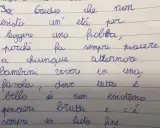 credo che non
esista un' età per
leggere una fiaba,
perché fa sempre piacere
a chiunque ritornare
bambini vivere in una
favola, dove tutto è
bello e non esistono
persone brutte e c'è
sempre un lieto fine